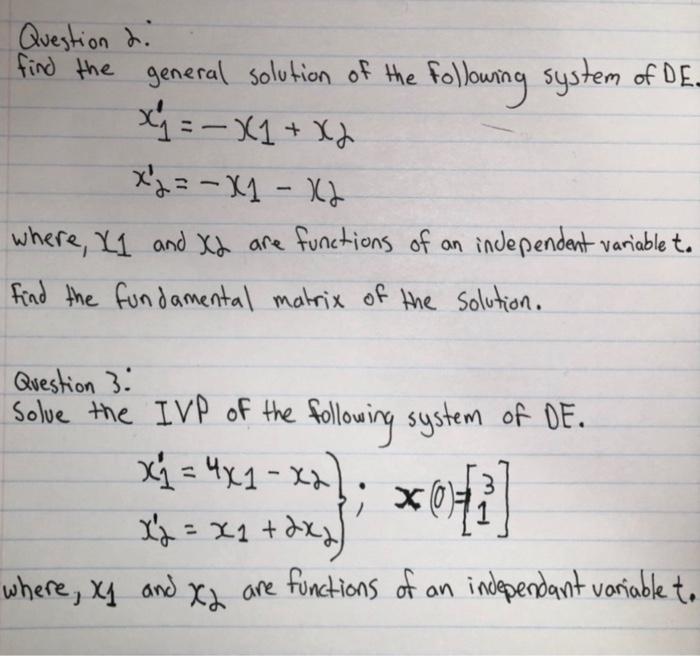 Question 2:
find the general solution of the following system of DE.
x'1 = -x1 + x2
x'2 = -x1 - x2
where, x1 and x2 are functions of an independent variable t.
Find the fundamental matrix of the solution.
Question 3:
Solve the IVP of the following system of DE.
x'1 = 4x1 - x2 } ; x(0)= [3
x'2 = x1 + 2x2 } 1]
where, x1 and x2 are functions of an independant variable t.